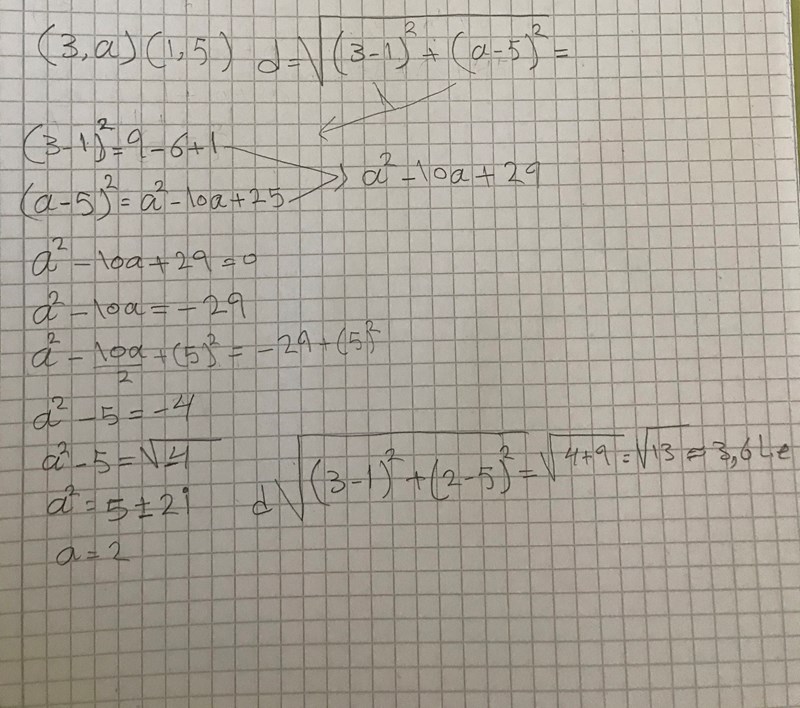 (3,a) (1,5) d=√(3-1)²+(a-5)² =
(3-1)²=9-6+1
(a-5)²=a²-10a+25
a²-10a+29
a²-10a+29=0
a²-10a=-29
a²-10a/2+(5)²=-29+(5)²
a²-5=-4
a²-5=√-4
a²=5±2i
d√(3-1)²+(2-5)²=√4+9=√13≈3,6 l.e
a=2